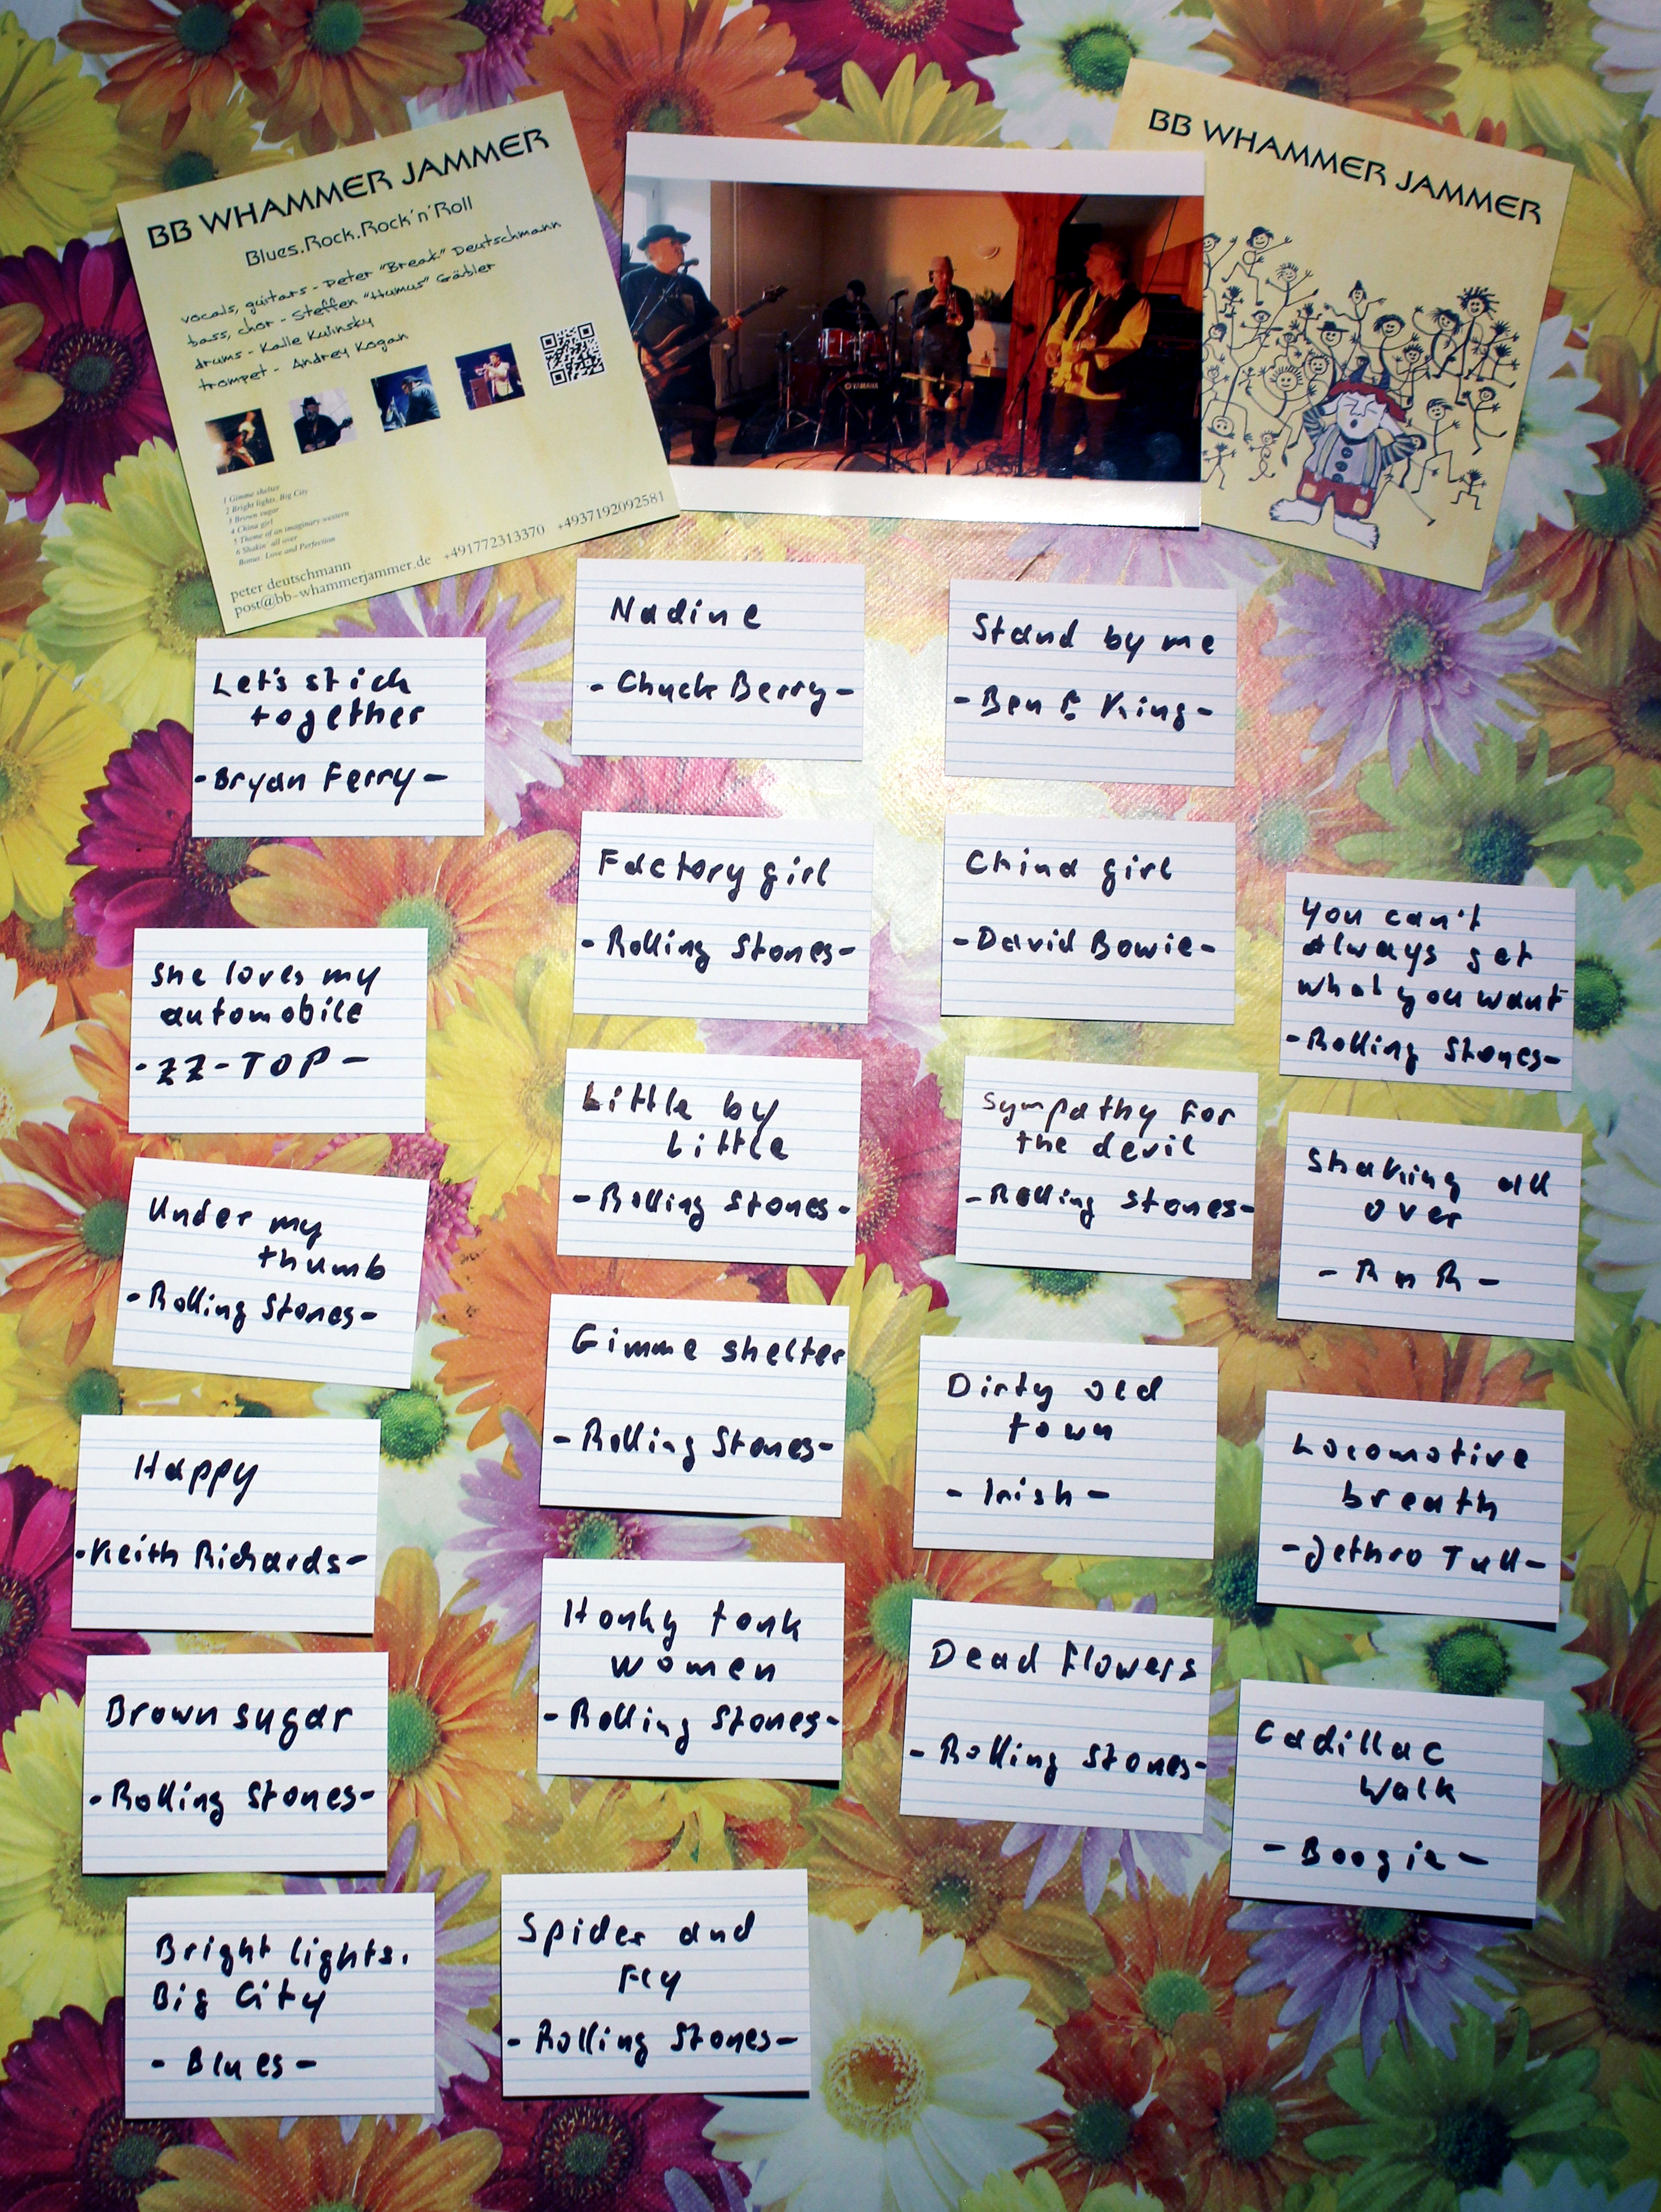 BB WHAMMER JAMMER
Blues.Rock.Rock'n'Roll
vocals, guitars - Peter "Break" Deutschmann
bass, chor - Steffen "Humus" Gäbler
drums - Kalle Kulinsky
trompet - Andrey Kogan
1 Gimme shelter
2 Bright lights, Big City
3 Brown sugar
4 China girl
5 Theme of an imaginary western
6 Shakin' all over
Bonus: Love and Perfection
peter deutschmann
post@bb-whammerjammer.de +491772313370 +4937192092581
YAMAHA
BB WHAMMER JAMMER
Let's stick
together
-Bryan Ferry-
She loves my
automobile
-ZZ-TOP-
Under my
thumb
-Rolling Stones-
Happy
-Keith Richards-
Brown sugar
-Rolling Stones-
Bright lights.
Big City
- Blues -
Nadine
- Chuck Berry -
Factory girl
-Rolling Stones-
Little by
Little
-Rolling Stones-
Gimme shelter
-Rolling Stones-
Honky tonk
women
-Rolling Stones-
Spider and
Fly
-Rolling Stones-
Stand by me
-Ben E King-
China girl
-David Bowie-
Sympathy for
the devil
-Rolling Stones-
Dirty old
town
- Irish -
Dead flowers
-Rolling Stones-
You can't
always get
what you want
-Rolling Stones-
Shaking all
over
- R n R -
Locomotive
breath
-Jethro Tull-
Cadillac
Walk
- Boogie -